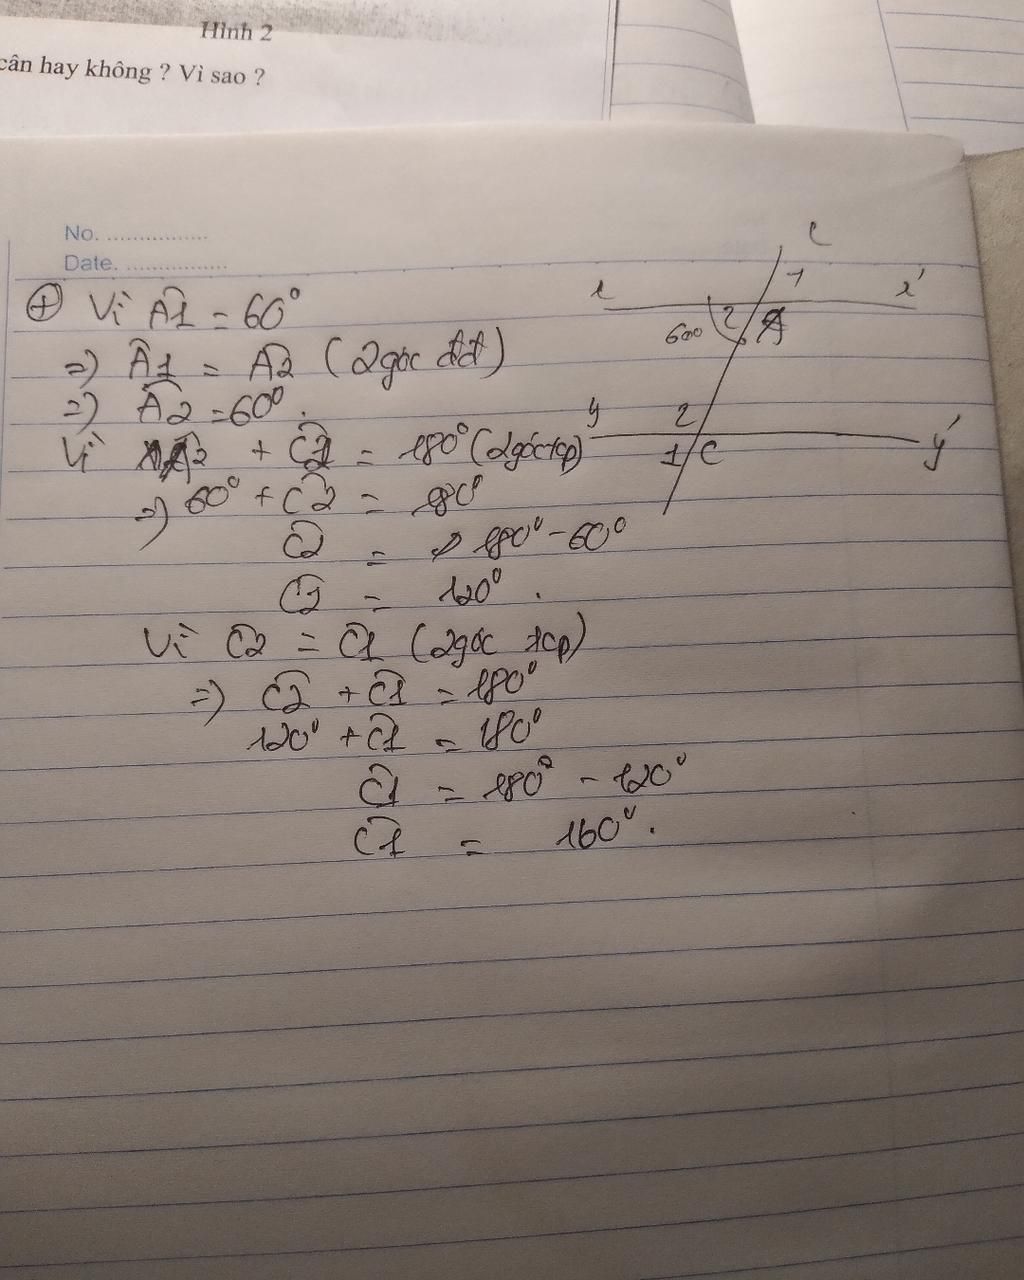 Hình 2
cân hay không ? Vì sao ?
No. ................
Date. .................
⊕ Vì Â1 = 60°
=> Â1 = Â2 (2góc đđ)
=> Â2 = 60°.
Vì Â2 + Ĉ2 = 180° (2góc tcp)
=> 60° + Ĉ2 = 180°
Ĉ2 = 180° - 60°
Ĉ2 = 120°.
Vì Ĉ2 = Ĉ1 (2góc tcp)
=> Ĉ2 + Ĉ1 = 180°
120° + Ĉ1 = 180°
Ĉ1 = 180° - 120°
Ĉ1 = 160°.
1
x'
600 2 A
y 2
1 C y'